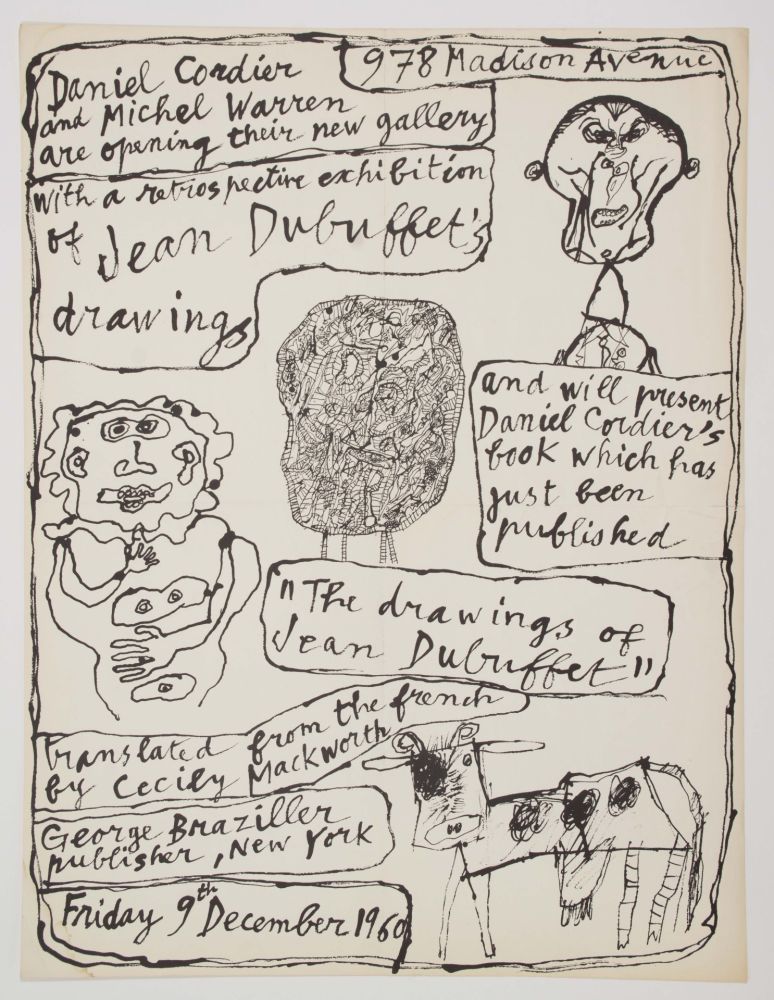 Daniel Cordier
and Michel Warren
are opening their new gallery
978 Madison Avenue
with a retrospective exhibition
of Jean Dubuffet's
drawings
and will present
Daniel Cordier's
book which has
just been
published
"The drawings of
Jean Dubuffet"
translated from the french
by Cecily Mackworth
George Braziller
publisher, New York
Friday 9th December 1960